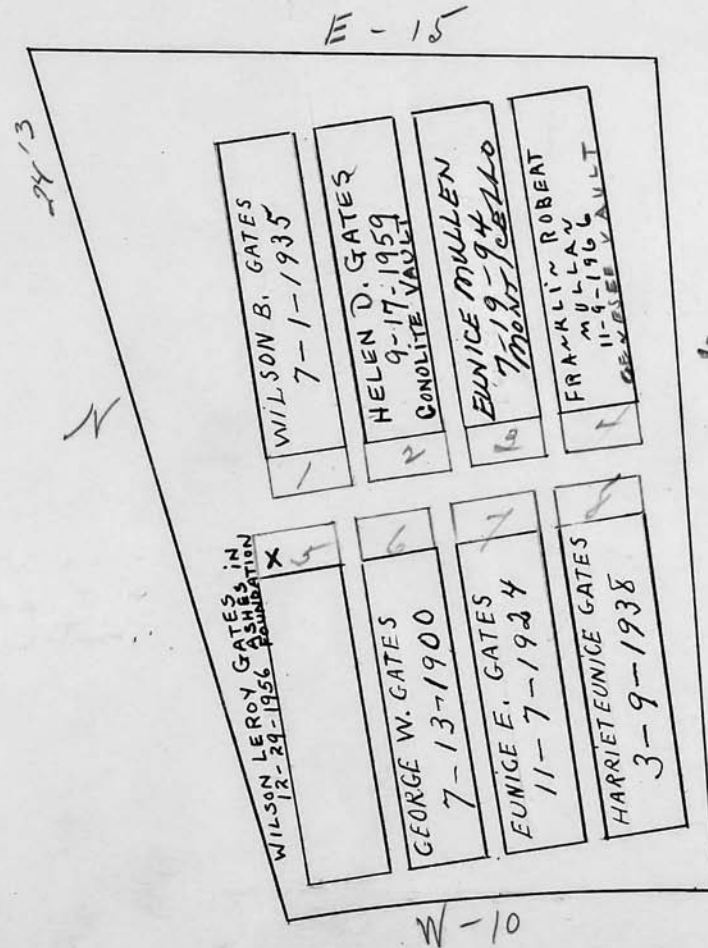 E - 15
24'3
N
WILSON B. GATES
7-1-1935
1
HELEN D. GATES
9-17-1959
CONOLITE VAULT
2
EUNICE MULLEN
7-19-94
MONTICELLO
3
FRANKLIN ROBERT
MULLAN
11-9-1966
GENESEE VAULT
4
WILSON LEROY GATES
ASHES IN
12-29-1956 FOUNDATION
X
5
GEORGE W. GATES
7-13-1900
6
EUNICE E. GATES
11-7-1924
7
HARRIET EUNICE GATES
3-9-1938
8
W-10